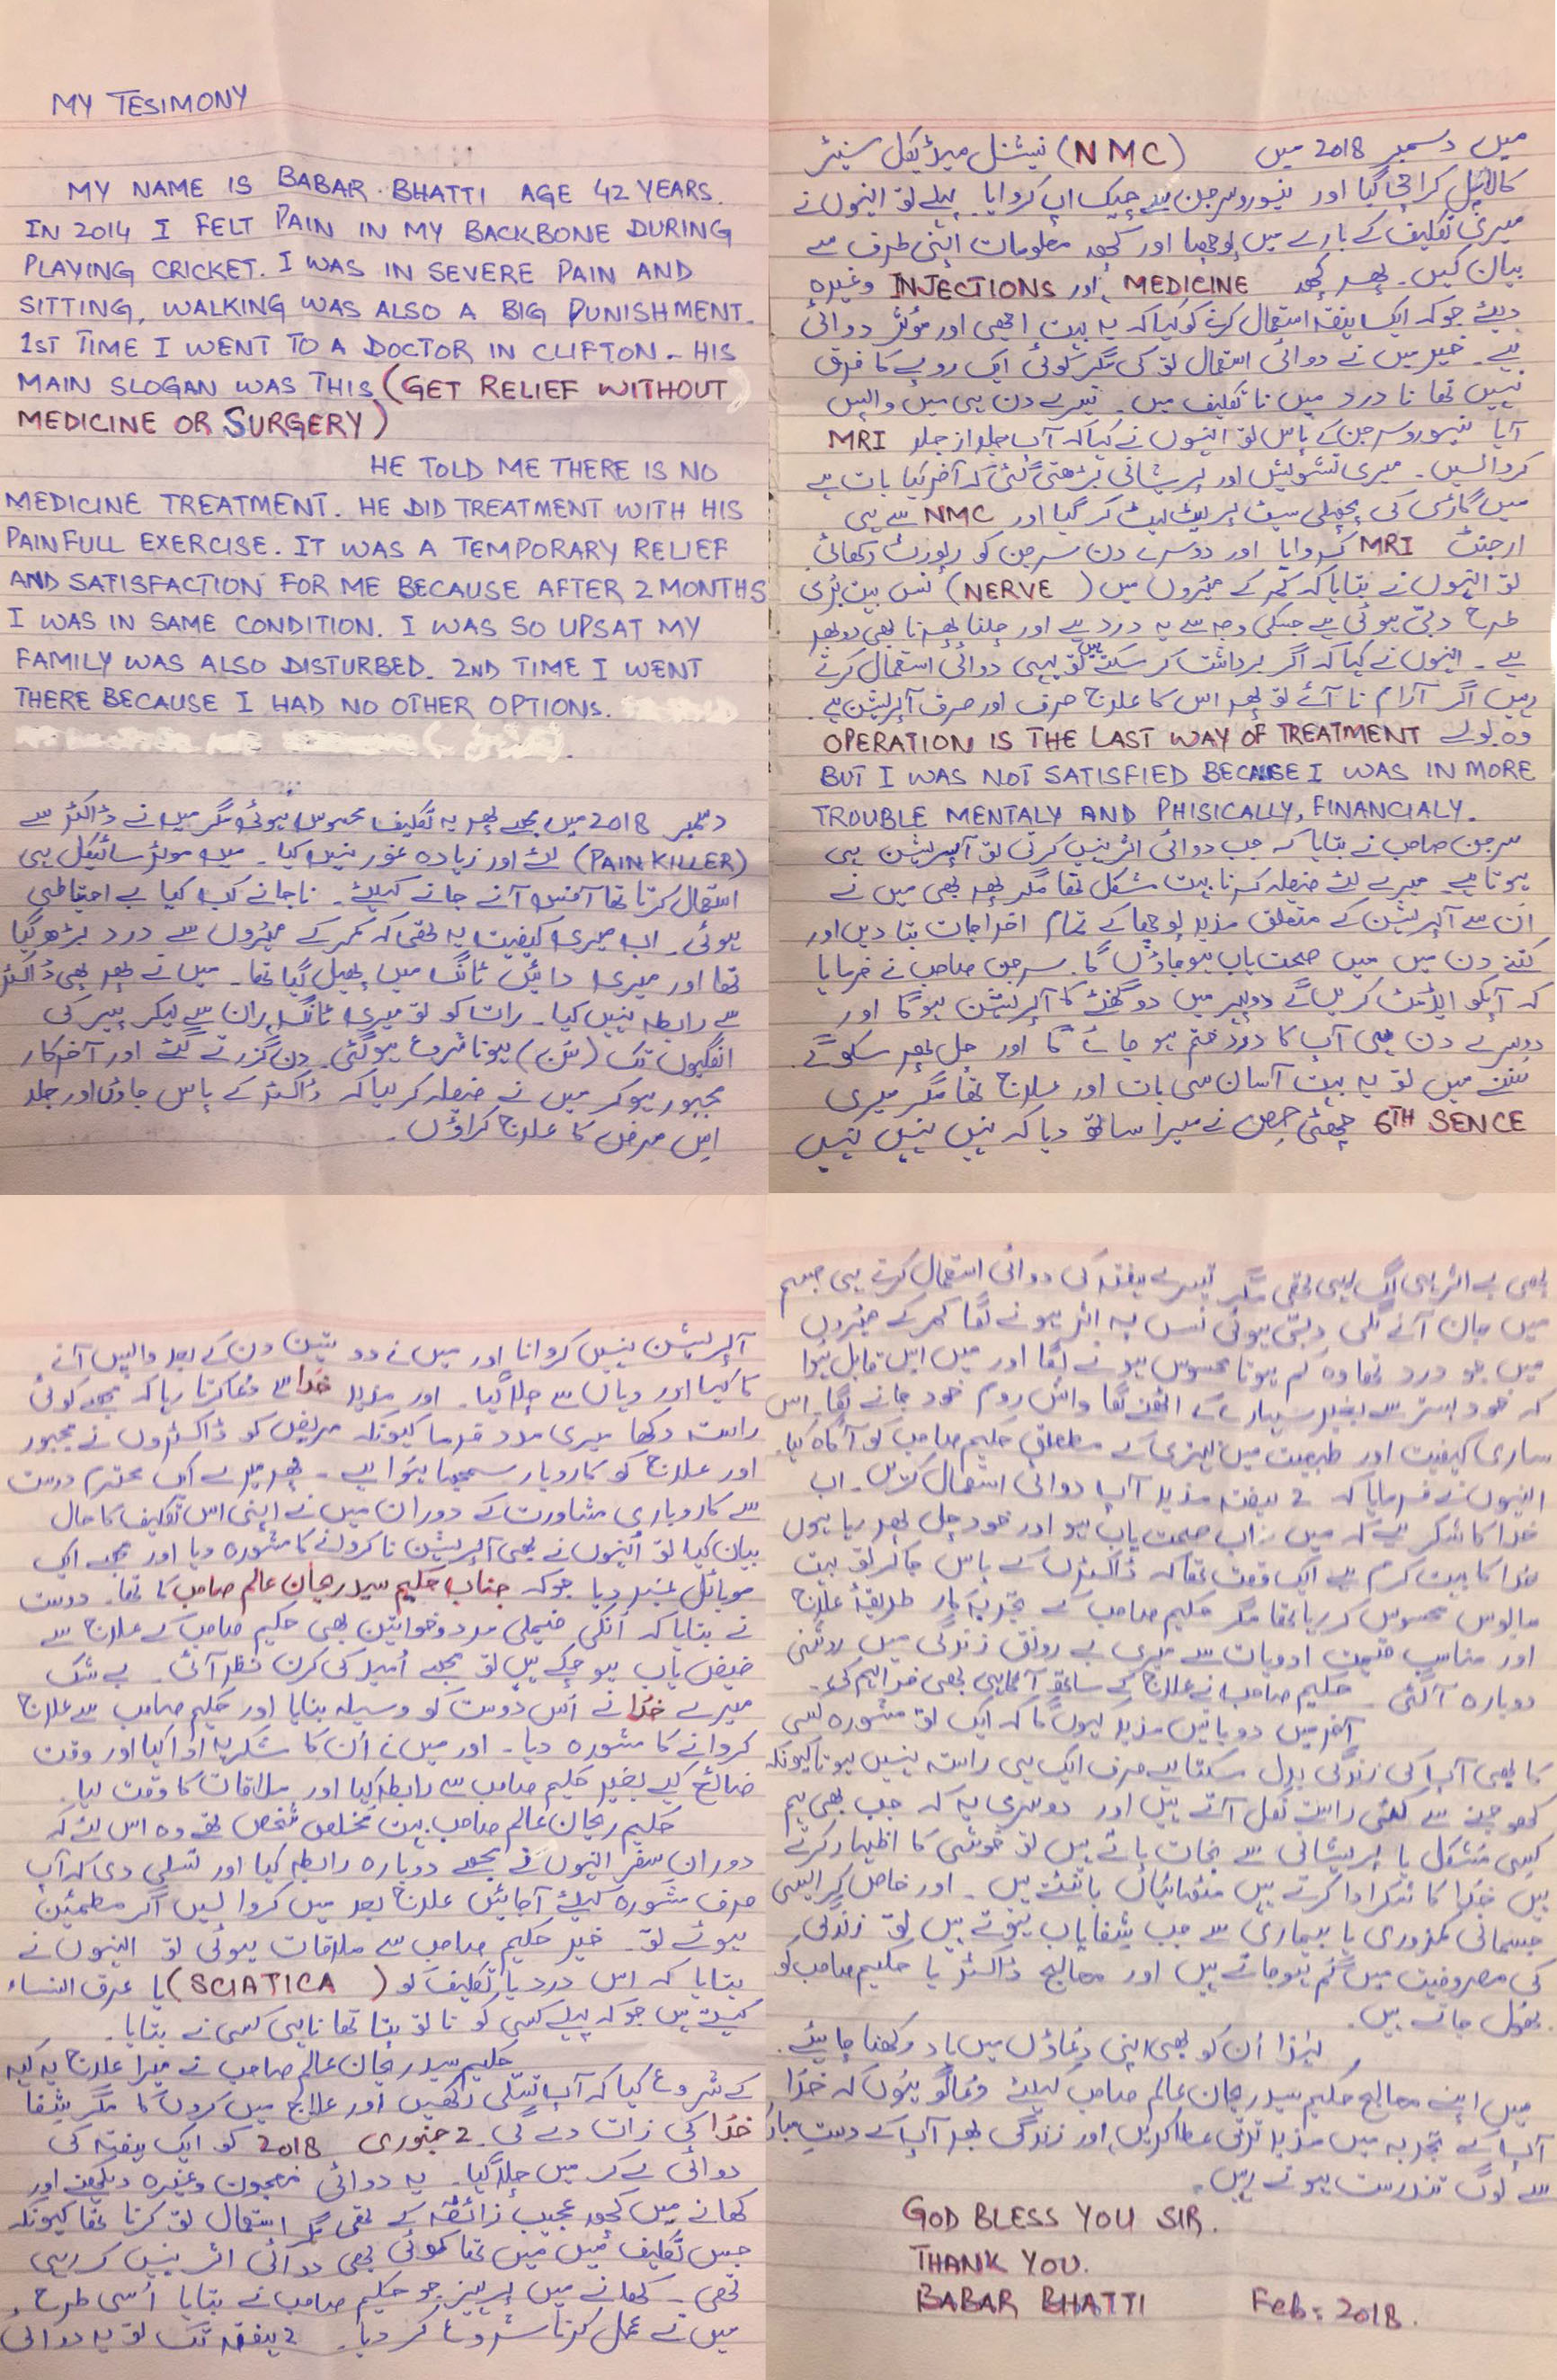 MY TESIMONY
MY NAME IS BABAR BHATTI AGE 42 YEARS.
IN 2014 I FELT PAIN IN MY BACKBONE DURING
PLAYING CRICKET. I WAS IN SEVERE PAIN AND
SITTING, WALKING WAS ALSO A BIG PUNISHMENT.
1ST TIME I WENT TO A DOCTOR IN CLIFTON - HIS
MAIN SLOGAN WAS THIS (GET RELIEF WITHOUT
MEDICINE OR SURGERY)
HE TOLD ME THERE IS NO
MEDICINE TREATMENT. HE DID TREATMENT WITH HIS
PAINFULL EXERCISE. IT WAS A TEMPORARY RELIEF
AND SATISFACTION FOR ME BECAUSE AFTER 2 MONTHS
I WAS IN SAME CONDITION. I WAS SO UPSAT MY
FAMILY WAS ALSO DISTURBED. 2ND TIME I WENT
THERE BECAUSE I HAD NO OTHER OPTIONS.
دسمبر 2018 میں مجھے پھر یہ تکلیف محسوس ہوئی مگر میں نے ڈاکٹر سے
(PAIN KILLER) لئے اور زیادہ غور نہیں کیا۔ میں موٹر سائیکل ہی
استعمال کرتا تھا آفس آنے جانے کیلئے۔ ناجانے کب کیا بے احتیاطی
ہوئی۔ اب میری کیفیت یہ تھی کہ کمر کے مہروں سے درد بڑھ گیا
تھا اور میری دائیں ٹانگ میں پھیل گیا تھا۔ میں نے پھر بھی ڈاکٹر
سے رابطہ نہیں کیا۔ رات کو تو میری ٹانگ ران سے لیکر پیر کی
انگلیوں تک (سُن) ہونا شروع ہوگئی۔ دن گزرتے گئے اور آخرکار
مجبور ہوکر میں نے فیصلہ کر لیا کہ ڈاکٹر کے پاس جاؤں اور جلد
اس مرض کا علاج کراؤں۔
میں دسمبر 2018 میں (NMC) نیشنل میڈیکل سینٹر
کالاپل کراچی گیا اور نیوروسرجن سے چیک اپ کروایا۔ پہلے تو انہوں نے
میری تکلیف کے بارے میں پوچھا اور کچھ معلومات اپنی طرف سے
بیان کیں۔ پھر کچھ MEDICINE اور INJECTIONS وغیرہ
دیئے جوکہ ایک ہفتہ استعمال کرنے کو کہا کہ یہ بہت اچھی اور موثر دوائی
ہے۔ خیر میں نے دوائی استعمال تو کی مگر کوئی ایک روپے کا فرق
نہیں تھا نا درد میں نا تکلیف میں۔ تیسرے دن ہی میں واپس
آیا نیوروسرجن کے پاس تو انہوں نے کہا کہ آپ جلد از جلد MRI
کروالیں۔ میری تشویش اور پریشانی بڑھتی گئی کہ آخر کیا بات ہے
میں گاڑی کی پچھلی سیٹ پر لیٹ کر گیا اور NMC سے ہی
ارجنٹ MRI کروایا اور دوسرے دن سرجن کو رپورٹ دکھائی
تو انہوں نے بتایا کہ کمر کے مہروں میں (NERVE) نس بہت بُری
طرح دبی ہوئی ہے جسکی وجہ سے یہ درد ہے اور چلنا پھرنا بھی دوبھر
ہے۔ انہوں نے کہا کہ اگر برداشت کر سکتے ہیں تو یہی دوائی استعمال کرتے
رہیں اگر آرام نا آئے تو پھر اس کا علاج صرف اور صرف آپریشن ہے۔
وہ بولے OPERATION IS THE LAST WAY OF TREATMENT
BUT I WAS NOT SATISFIED BECAUSE I WAS IN MORE
TROUBLE MENTALY AND PHISICALLY, FINANCIALY.
سرجن صاحب نے بتایا کہ جب دوائی اثر نہیں کرتی تو آپریشن ہی
ہوتا ہے۔ میرے لئے فیصلہ کرنا بہت مشکل تھا مگر پھر بھی میں نے
اُن سے آپریشن کے متعلق مزید پوچھا کے تمام اخراجات بتا دیں اور
کتنے دن میں میں صحت یاب ہوجاؤں گا۔ سرجن صاحب نے فرمایا
کہ آپکو ایڈمٹ کریں گے دوپہر میں دو گھنٹے کا آپریشن ہوگا اور
دوسرے دن ہی آپ کا درد ختم ہو جائے گا اور چل پھر سکو گے۔
سننے میں تو یہ بہت آسان سی بات اور علاج تھا مگر میری
6TH SENCE چھٹی حِس نے میرا ساتھ دیا کہ نہیں نہیں نہیں
آپریشن نہیں کروانا اور میں نے دو تین دن کے بعد واپس آنے
کا کہا اور وہاں سے چلا گیا۔ اور مزید خُدا سے دُعا کرتا رہا کہ مجھے کوئی
راستہ دکھا میری مدد فرما کیونکہ مریض کو ڈاکٹروں نے مجبور
اور علاج کو کاروبار سمجھا ہُوا ہے۔ پھر میرے ایک محترم دوست
سے کاروباری مشاورت کے دوران میں نے اپنی اس تکلیف کا حال
بیان کیا تو اُنہوں نے بھی آپریشن نا کروانے کا مشورہ دیا اور مجھے ایک
موبائل نمبر دیا جوکہ جناب حکیم سید ریحان عالم صاحب کا تھا۔ دوست
نے بتایا کہ اُنکی فیملی مرد و خواتین بھی حکیم صاحب کے علاج سے
فیض یاب ہو چکے ہیں تو مجھے اُمید کی کرن نظر آئی۔ بے شک
میرے خُدا نے اُس دوست کو وسیلہ بنایا اور حکیم صاحب سے علاج
کروانے کا مشورہ دیا۔ اور میں نے اُن کا شکریہ ادا کیا اور وقت
ضائع کیے بغیر حکیم صاحب سے رابطہ کیا اور ملاقات کا وقت لیا۔
حکیم ریحان عالم صاحب بہت مخلص شخص تھے وہ اس لئے کہ
دورانِ سفر انہوں نے مجھے دوبارہ رابطہ کیا اور تسلی دی کہ آپ
صرف مشورہ کیلئے آجائیں علاج بعد میں کروا لیں اگر مطمئین
ہوئے تو۔ خیر حکیم صاحب سے ملاقات ہوئی تو انہوں نے
بتایا کہ اس درد یا تکلیف کو (SCIATICA) یا عرق النساء
کہتے ہیں جوکہ پہلے کسی کو نا تو پتا تھا نا ہی کسی نے بتایا۔
حکیم سید ریحان عالم صاحب نے میرا علاج یہ کہہ
کے شروع کیا کہ آپ تسلّی رکھیں اور علاج میں کروں گا مگر شفا
خُدا کی زات دے گی۔ 2 جنوری 2018 کو ایک ہفتہ کی
دوائی لے کر میں چلا گیا۔ یہ دوائی معجون وغیرہ دیکھنے اور
کھانے میں کچھ عجیب زائقہ کے تھی مگر استعمال تو کرنا تھا کیونکہ
جس تکلیف میں میں تھا کوئی بھی دوائی اثر نہیں کر رہی
تھی۔ کھانے میں پرہیز جو حکیم صاحب نے بتایا اُسی طرح
میں نے عمل کرنا شروع کر دیا۔ 2 ہفتہ تک تو یہ دوائی
بھی بے اثر ہی لگ رہی تھی مگر تیسرے ہفتہ کی دوائی استعمال کرتے ہی جسم
میں جان آنے لگی دبی ہوئی نس پہ اثر ہونے لگا کمر کے مہروں
میں جو درد تھا وہ کم ہوتا محسوس ہونے لگا اور میں اس قابل ہُوا
کہ خود بستر سے بغیر سہارے کے اٹھنے لگا واش روم خود جانے لگا۔ اس
ساری کیفیت اور طبیعت میں بہتری کے مطعلق حکیم صاحب کو آگاہ کیا۔
انہوں نے فرمایا کہ 2 ہفتہ مزید آپ دوائی استعمال کریں۔ اب
خدا کا شکر ہے کہ میں اب صحت یاب ہو اور خود چل پھر رہا ہوں
خدا کا بہت کرم ہے ایک وقت تھا کہ ڈاکٹروں کے پاس جا کر تو بہت
مایوس محسوس کر رہا تھا مگر حکیم صاحب کے تجربہ کار طریقۂ علاج
اور مناسب قیمت ادویات سے میری بے رونق زندگی میں روشنی
دوبارہ آگئی۔ حکیم صاحب نے علاج کے ساتھ آگاہی بھی فراہم کی۔
آخر میں دو باتیں مزید کہوں گا کہ ایک تو مشورہ کسی
کا بھی آپ کی زندگی بدل سکتا ہے صرف ایک ہی راستہ نہیں ہوتا کیونکہ
کھوجنے سے کئی راستے نکل آتے ہیں اور دوسری یہ کہ جب بھی ہم
کسی مُشکل یا پریشانی سے نجات پاتے ہیں تو خوشی کا اظہار کرتے
ہیں خُدا کا شکر ادا کرتے ہیں مٹھائیاں بانٹتے ہیں۔ اور خاص کر ایسی
جسمانی کمزوری یا بیماری سے جب شفایاب ہوتے ہیں تو زندگی
کی مصروفیت میں گُم ہوجاتے ہیں اور معالج ڈاکٹر یا حکیم صاحب کو
بھول جاتے ہیں۔
لہٰذا اُن کو بھی اپنی دُعاؤں میں یاد رکھنا چاہیئے۔
میں اپنے معالج حکیم سید ریحان عالم صاحب کیلئے دُعاگو ہوں کہ خُدا
آپ کے تجربہ میں مزید ترقی عطا کریں اور زندگی بھر آپ کے دستِ مبارک
سے لوگ تندرست ہوتے رہیں۔
GOD BLESS YOU SIR.
THANK YOU.
BABAR BHATTI Feb: 2018.